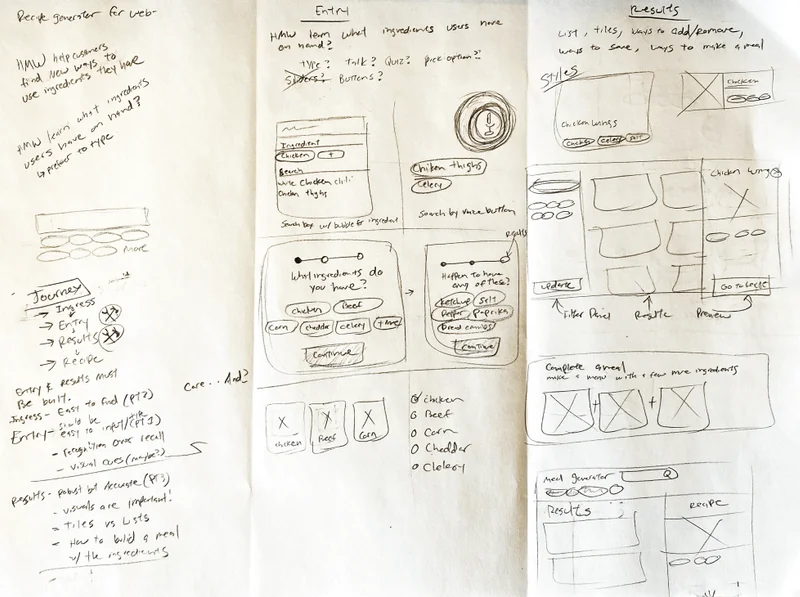 Recipe generator for web-
HMW help customers
find new ways to
use ingredients they have
HMW learn what ingredients
users have on hand?
↳ prefer to type
more
Journey
→ Ingress
→ Entry
→ Results
→ Recipe
Entry & Results must
Be built.
Ingress - Easy to find (PT2)
Entry - should be easy to input (PT1)
- recognition over recall
- visual cues (maybe?)
Core... And?
Results - robust but accurate (PT3)
- visuals are important!
- Tiles vs Lists
- How to build a meal
w/ the ingredients
Entry
HMW learn what ingredients users have
on hand?
Type? Talk? Quiz? pick option??
Sliders? Buttons?
Ingredient
Chicken +
Search
White Chicken chili
Chicken thighs
Search box w/ bubble for ingredient
Chiken thighs
Celery
Search by voice button
What ingredients do
you have?
chicken Beef
Corn cheddar Celery + more
Continue
Results
Happen to have
any of these?
Ketchup Salt
Pepper Paprika
bread crumbs
Continue
chicken
Beef
Corn
Chicken
Beef
Corn
Cheddar
Clelery
Results
List, tiles, ways to add/remove,
ways to save, ways to make a meal
Styles
Chicken wings
Chicken Celery
Chicken
Chicken Wing
update
Go to Recipe
Filter Panel
Results
Preview
Complete a meal
make a menu with a few more ingredients
meal generator
Results
RECIPE